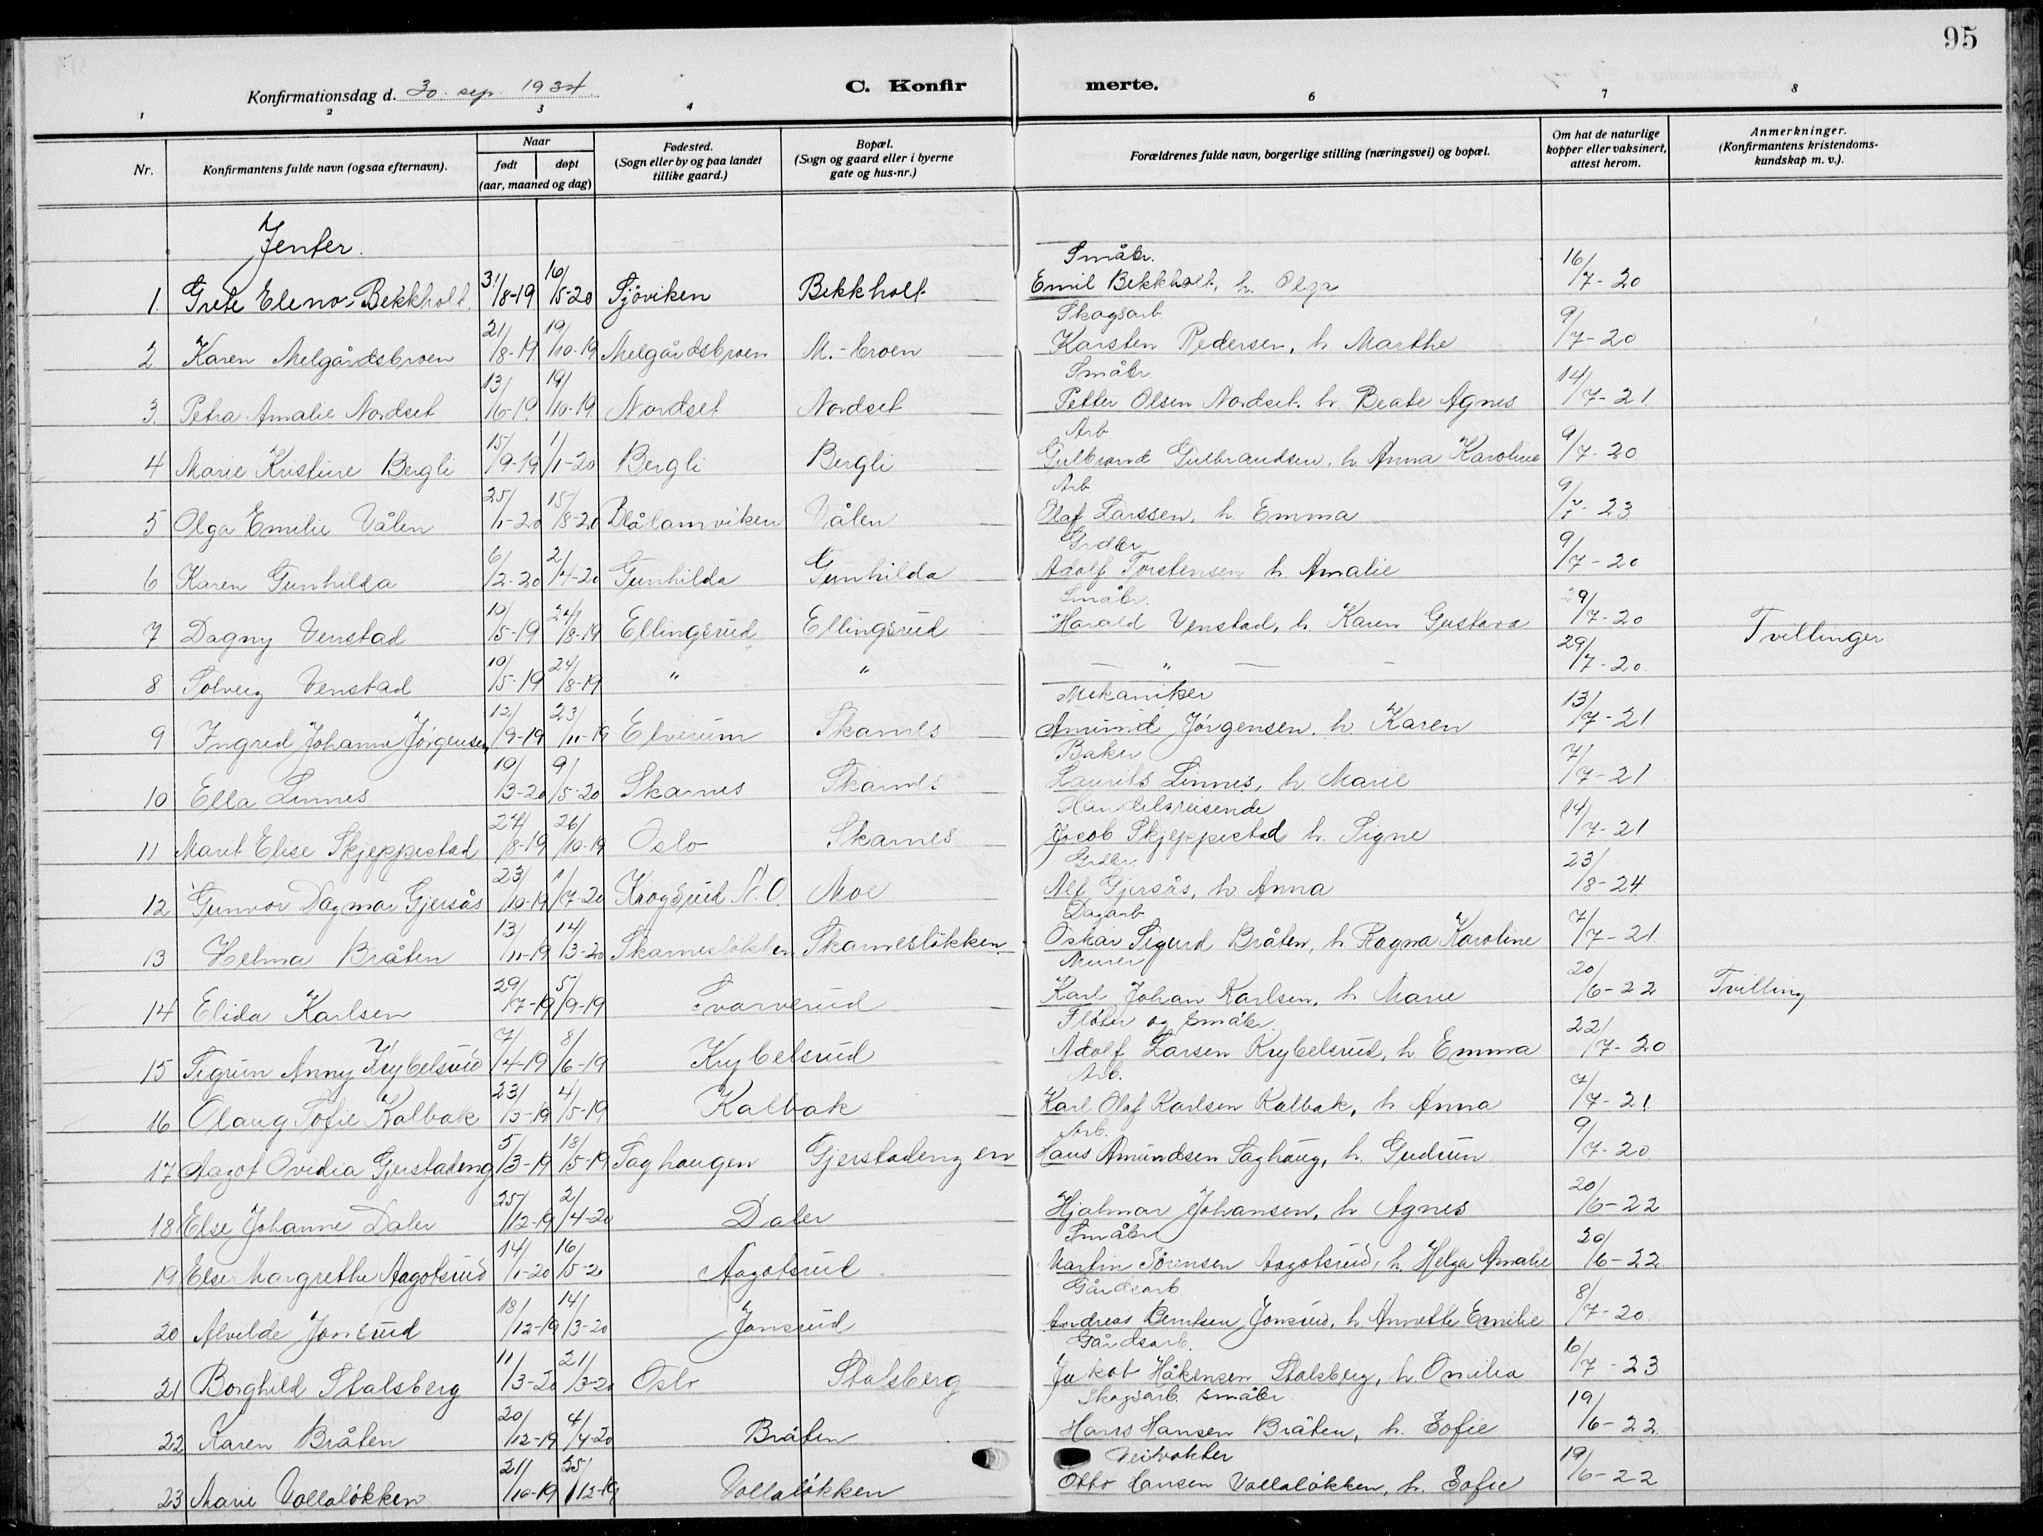 95
Konfirmationsdag d. 30. sep. 1934
C. Konfirmerte.
1 2 3 4 6 7 8
Nr.
Konfirmantens fulde navn (ogsaa efternavn).
Naar
født døpt
(aar, maaned og dag)
Fødested.
(Sogn eller by og paa landet
tillike gaard.)
Bopæl.
(Sogn og gaard eller i byerne
gate og hus-nr.)
Forældrenes fulde navn, borgerlige stilling (næringsvei) og bopæl.
Om hat de naturlige
kopper eller vaksinert,
attest herom.
Anmerkninger.
(Konfirmantens kristendoms-
kundskap m. v.).
Jenter.
Småbr.
1. Grete Bekkholt 31/8-19 16/5-20 Sjöviken Bekkholt Emil Bekkholt, h. Olga 16/7-20
Skogsarb.
2 Karen Melgårdsbroen 21/8-19 19/10-19 Melgårdsbroen M.-broen Karsten Pedersen, h Marthe 9/7-20
Småbr.
3. Petra Amalie Nordset 13/6-19 19/10-19 Nordset Nordset Petter Olsen Nordset, h Beate Agnes 14/7-21
Arb
4 Marie Kristine Bergli 15/9-19 1/1-20 Bergli Bergli Gulbrand Gulbrandsen, h Anna Karoline 9/7-20
Arb
5 Olga Emilie Vålen 25/1-20 15/8-20 Blålamviken Vålen Olaf Larssen, h. Emma 9/7-23
Grdbr.
6 Karen Gunhilda 6/2-20 2/4-20 Gunhilda Gunhilda Adolf Torstensen h. Amalie 9/7-20
Småbr.
7 Dagny Venstad 10/5-19 24/8-19 Ellingsrud Ellingsrud Harald Venstad, h Karen Gustava 29/7-20 Tvillinger
8 Solveig Venstad 10/5-19 24/8-19 " " — " — 29/7-20
Mekaniker
9 Ingrid Johanne Jörgensen 12/9-19 23/11-19 Elverum Skarnes Amund Jörgensen, h Karen 13/7-21
Baker
10 Ella Linnes 19/3-20 9/5-20 Skarnes Skarnes Laurits Linnes, h Marie 7/7-21
Handelsreisende
11 Marit Elise Skjeppestad 24/8-19 26/10-19 Oslo Skarnes Jacob Skjeppestad h. Signe 14/7-21
Grdbr.
12 Gunvor Dagmar Gjersås 23/10-19 1/7-20 Krogsrud N.O. Moe Alf Gjersås, h Anna 23/8-24
Dagarb.
13 Helma Bråten 13/11-19 14/3-20 Skarneslökken Skarneslökken Oskar Sigurd Bråten, h Ragna Karoline 7/7-21
Murer
14 Elida Karlsen 29/7-19 5/9-19 Svarverud Karl Johan Karlsen, h. Marie 20/6-22 Tvilling
Flöter og småbr.
15 Sigrun Anny Krybelsrud 7/4-19 8/6-19 Krybelsrud Adolf Larsen Krybelsrud, h Emma 22/7-20
Arb.
16 Olaug Sofie Kalbak 23/3-19 4/5-19 Kalbak Karl Olaf Karlsen Kalbak, h Anna 7/7-21
Arb.
17 Aagot Ovidia Gjerstadeng 5/3-19 18/5-19 Saghaugen Gjerstadengen Hans Amundsen Saghaug, h. Gudrun 9/7-20
18 Else Johanne Daler 25/12-19 2/4-20 Daler Hjalmar Johansen, h Agnes 20/6-22
Småbr
19 Else Margrethe Aagotsrud 14/1-20 16/5-20 Aagotsrud Martin Sörensen Aagotsrud, h Helga Amalie 20/6-22
Gårdsarb.
20 Alvilde Jonsrud 18/12-19 14/3-20 Jonsrud Andreas Berntsen Jonsrud, h Annette Emilie 8/7-20
Gårdsarb.
21 Borghild Stalsberg 11/3-20 21/3-20 Oslo Stalsberg Jakob Håkensen Stalsberg, h. Omilia 6/7-23
Skogsarb. småbr.
22 Karen Bråten 20/12-19 4/4-20 Bråten Hans Hansen Bråten, h. Sofie 19/6-22
Veivokter
23 Marie Vollaløkken 21/10-19 25/12-19 Vollaløkken Otto Hansen Vollaløkken, h. Sofie 19/6-22